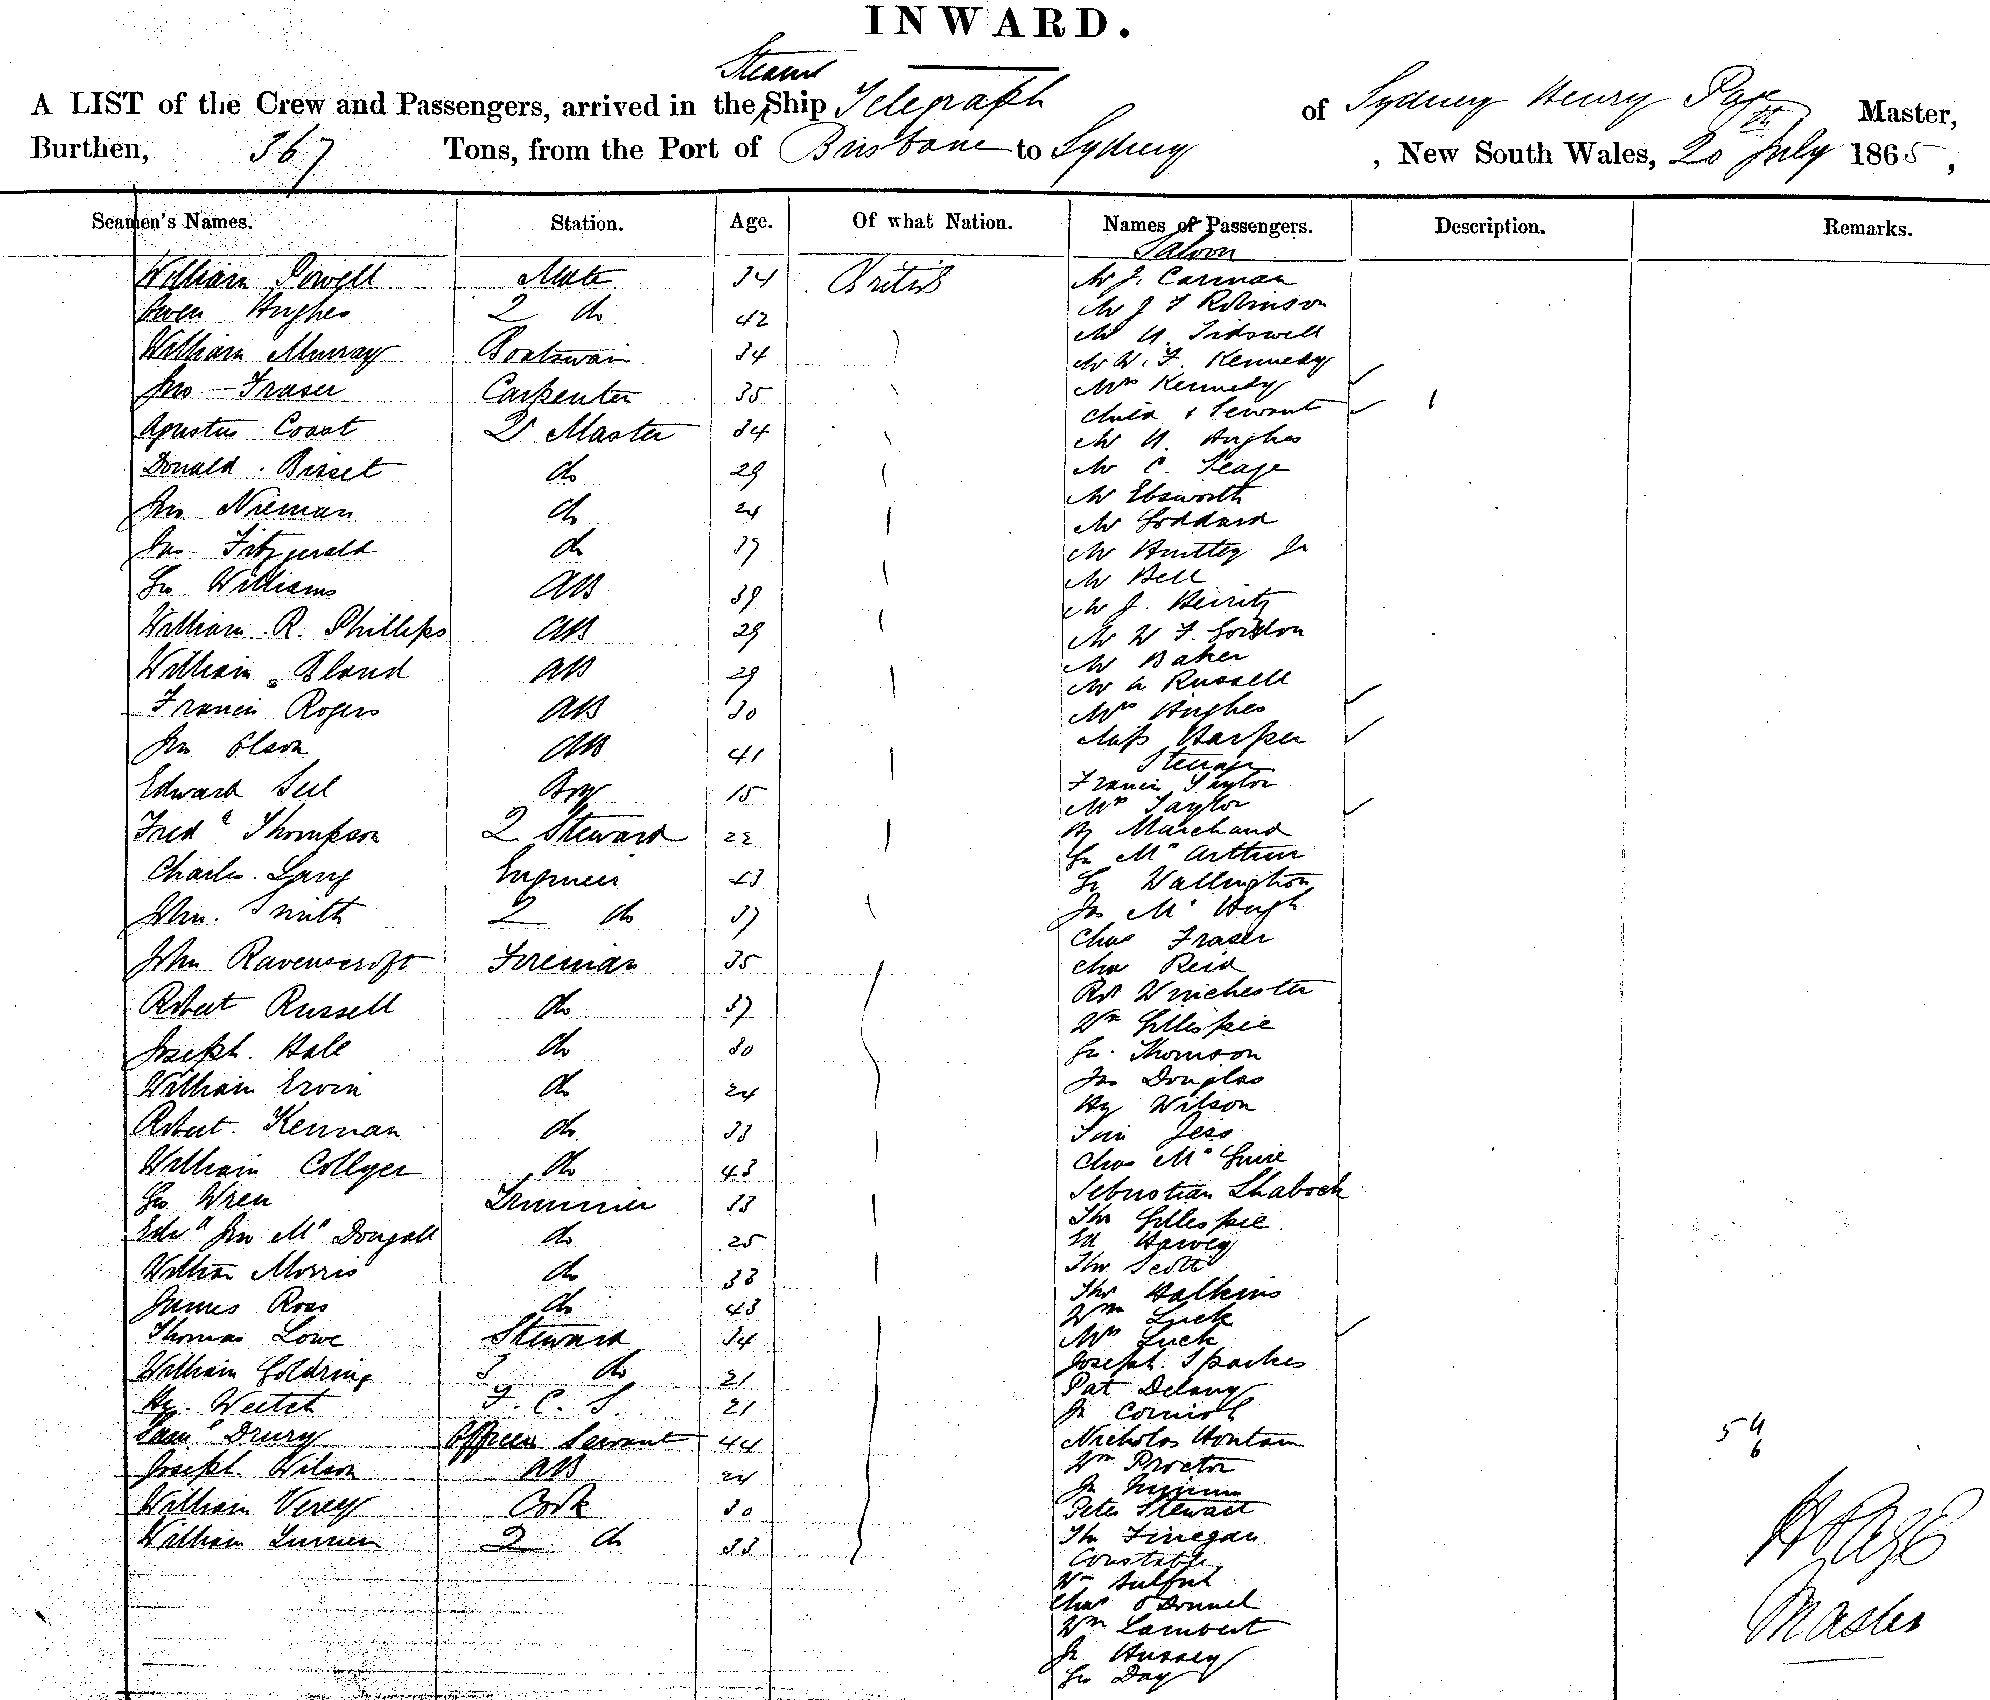 INWARD.
Steam
A LIST of the Crew and Passengers, arrived in the Ship Telegraph of Sydney Henry Page Master,
Burthen, 367 Tons, from the Port of Brisbane to Sydney, New South Wales, 20th July 1865,
Seamen's Names. Station. Age. Of what Nation. Names of Passengers. Description. Remarks.
Saloon
William Powell Mate 34 British Mr J. Carman
Owen Hughes 2 do 42 Mr J F Robinson
Mr H Tidswell
William Murray Boatswain 34 Mr W. F. Kennedy
Jno Fraser Carpenter 35 Mrs Kennedy
Child & Servant
Agustus Coast Qr Master 34 Mr H Hughes
Donald Birset do 29 Mr C.
Mr Ebsworth
Jno Nieman do 24 Mr Goddard
Jas Fitzgerald do 37 Mr Huttley Jr
Mr Bell
Go Williams AB 39 Mr J.
William R. Phillips AB 29 Mr W F. Gordon
William Bland AB 29 Mr Baker
Mr A Russell
Francis Rogers AB 30 Mrs Hughes
Jno Olson AB 41 Miss Harper
Steerage
Edward Seel Boy 15 Francis Taylor
Mrs Taylor
Fredk Thompson 2 Steward 22 Hy Marchand
Go Mc Arthur
Charles Lang Engineer 43 Go Wallington
John Smith 2 do 37 Jas Mc Hugh
Chas Fraser
John Ravenscroft Fireman 35 Chas Reid
Robert Russell do 37 Rt Winchester
Wm Gillespie
Joseph Hall do 30 Go. Thomson
William Ervin do 24 Jas Douglas
Hy Wilson
Robert Kennan do 33 Jess
William Collyer do 43 Chas Mc Guire
Go Wren Trimmer 33 Sebastian Shabock
Edwd Jno Mc Dougall do 25 Thos Gillespie
Ed Harvey
William Morris do 33 Thos Scott
James Ross do 43 Thos Halkins
Wm Luck
Thomas Lowe Steward 34 Mrs Luck
William Goldring 3 do 21 Joseph Sparkes
Pat Delany
Hy. Weitch F. C. S. 21 Jn Cornish
Saml Drury Officers Servant 44 Nicholas Hontam
Joseph Wilson AB 24 Wm Proctor
Jn
William Verey Cook 30 Peter Stewart
William Turner 2 do 33 Thos Finegan
Constable
Wm
Chas O'Donnel
Wm Lambert
Jn Hussey
Go Day
59
6
H Page
Master